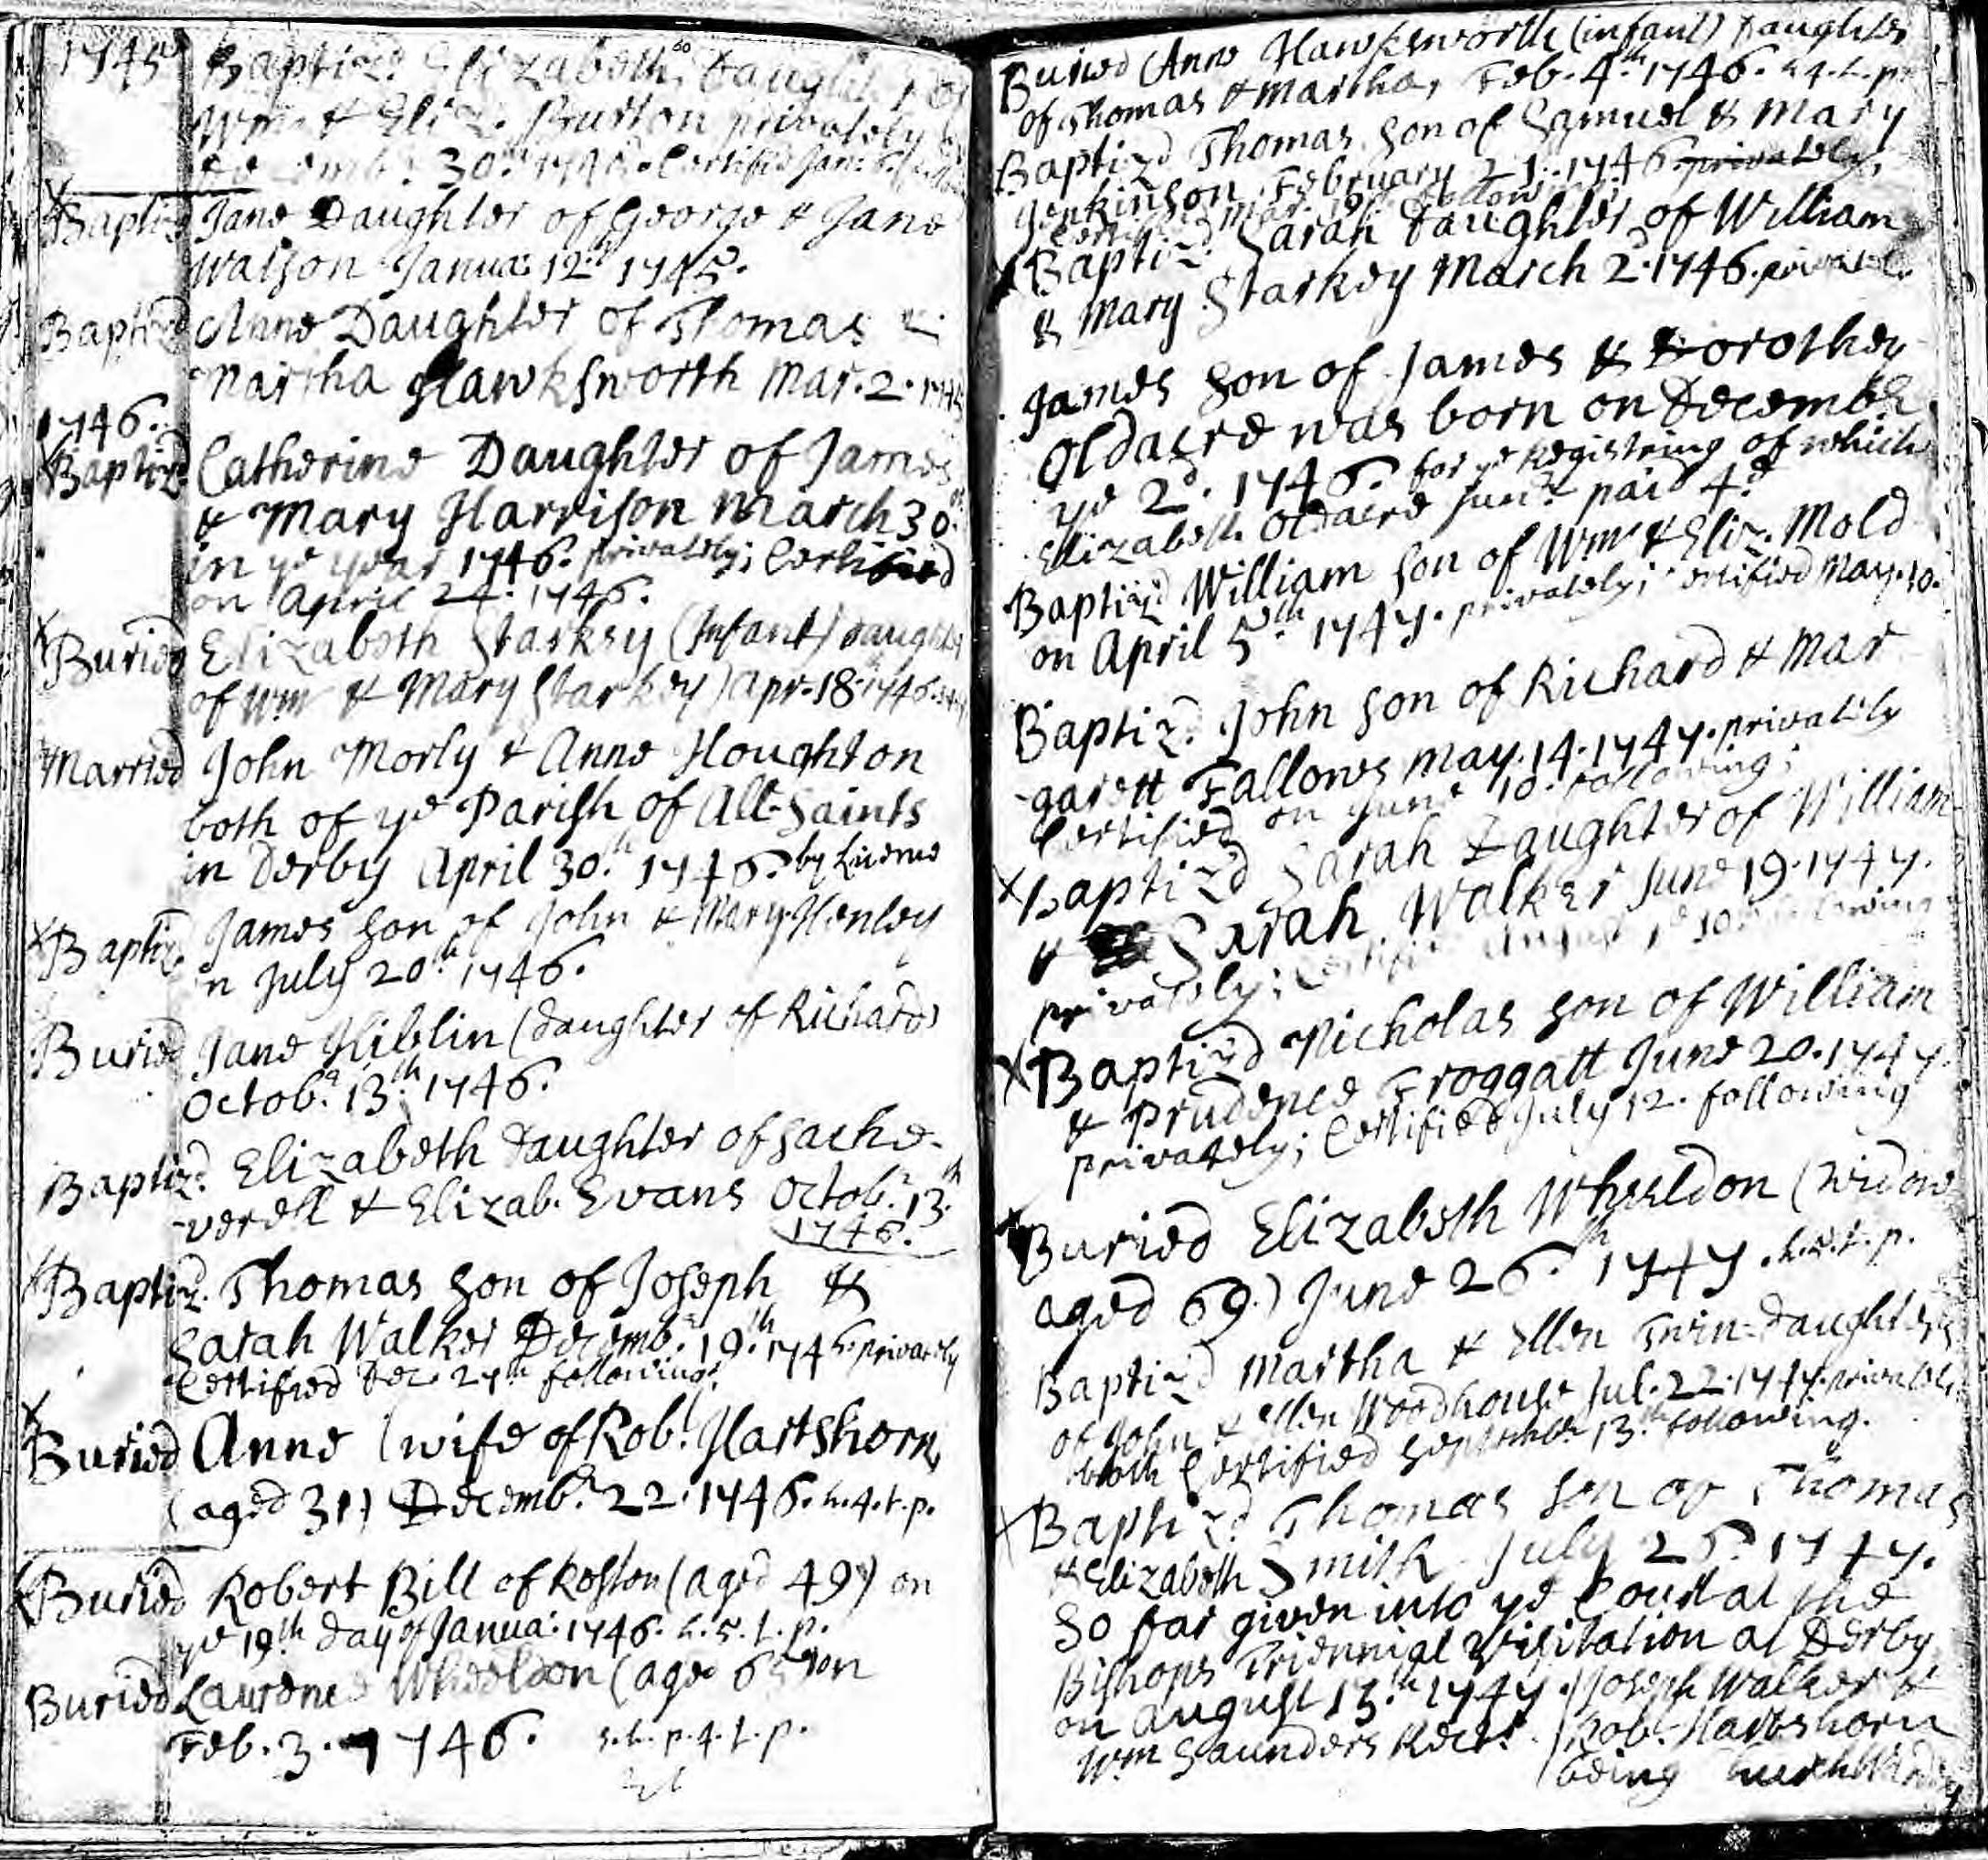 1745 Baptiz'd Elizabeth Daughter of
Wm & Eliz. Burton privately
Decemb. 30th 1745. Certified Jan.
Baptiz'd Jane Daughter of George & Jane
Watson Janua: 12th 1745.
Baptiz'd Anne Daughter of Thomas &
Martha Hawksworth Mar. 2. 1745
1746.
Baptiz'd Catherine Daughter of James
& Mary Harrison March 30th
in ye year 1746. privately; Certified
on April 24. 1746.
Buried Elizabeth Starkey (Infant) daughter
of Wm & Mary Starkey) Apr. 18. 1746.
Married John Morly & Anne Houghton
both of ye Parish of All-Saints
in Derby April 30th 1746. by Licence
Baptiz'd James son of John & Mary Henley
on July 20th 1746.
Buried Jane Hiblin (daughter of Richard)
Octobr. 13th 1746.
Baptiz'd Elizabeth Daughter of Sache-
verell & Elizab. Evans Octobr. 13th
1746.
Baptiz'd Thomas son of Joseph &
Sarah Walker Decembr. 19th 1746. privately
Certified Dec. 27th following.
Buried Anne (wife of Robt. Hartshorn,
(aged 31) Decembr. 22. 1746. h.4.t.p.
Buried Robert Bill of Roston (aged 49) on
ye 19th day of Janua: 1746. h.5.t.p.
Buried Laurence Wheeldon (aged 65) on
Feb. 3. 1746. s.h.p.4.t.p.
Buried Anne Hawksworth (infant) Daughter
of Thomas & Martha, Feb. 4th 1746. h.4.t.p.
Baptiz'd Thomas son of Samuel & Mary
Jenkinson February 21. 1746 privately;
Certified Mar. following
Baptiz'd Sarah Daughter of William
& Mary Starkey March 2d. 1746. privately
James son of James & Dorothey
Oldacre was born on Decembr.
ye 2d. 1746. for ye Registring of which
Elizabeth Oldacre junr. paid 4d.
Baptiz'd William son of Wm & Eliz. Mold
on April 5th 1747. privately; Certified May. 10.
Baptiz'd John son of Richard & Mar
-garett Fallows May. 14. 1747. privately
Certified on June 10. following;
Baptiz'd Sarah Daughter of William
& Sarah Walker June 19. 1747.
privately; Certified August ye 10th following
Baptiz'd Nicholas son of William
& Prudence Froggatt June 20. 1747.
privately; Certified July 12. following
Buried Elizabeth Wheeldon (widow
aged 69.) June 26th 1747. h.4.t.p.
Baptiz'd Martha & Ellen Twin-Daughters
of John & Ellen Woodhouse Jul. 22. 1747. privately
both Certified September 13th following.
Baptiz'd Thomas son of Thomas
& Elizabeth Smith July 25. 1747.
So far given into ye Court at the
Bishops Triennial Visitation at Derby
on August 13th 1747. Joseph Walker &
Wm Saunders Rectr. Robt. Hartshorn
being Church Wardens